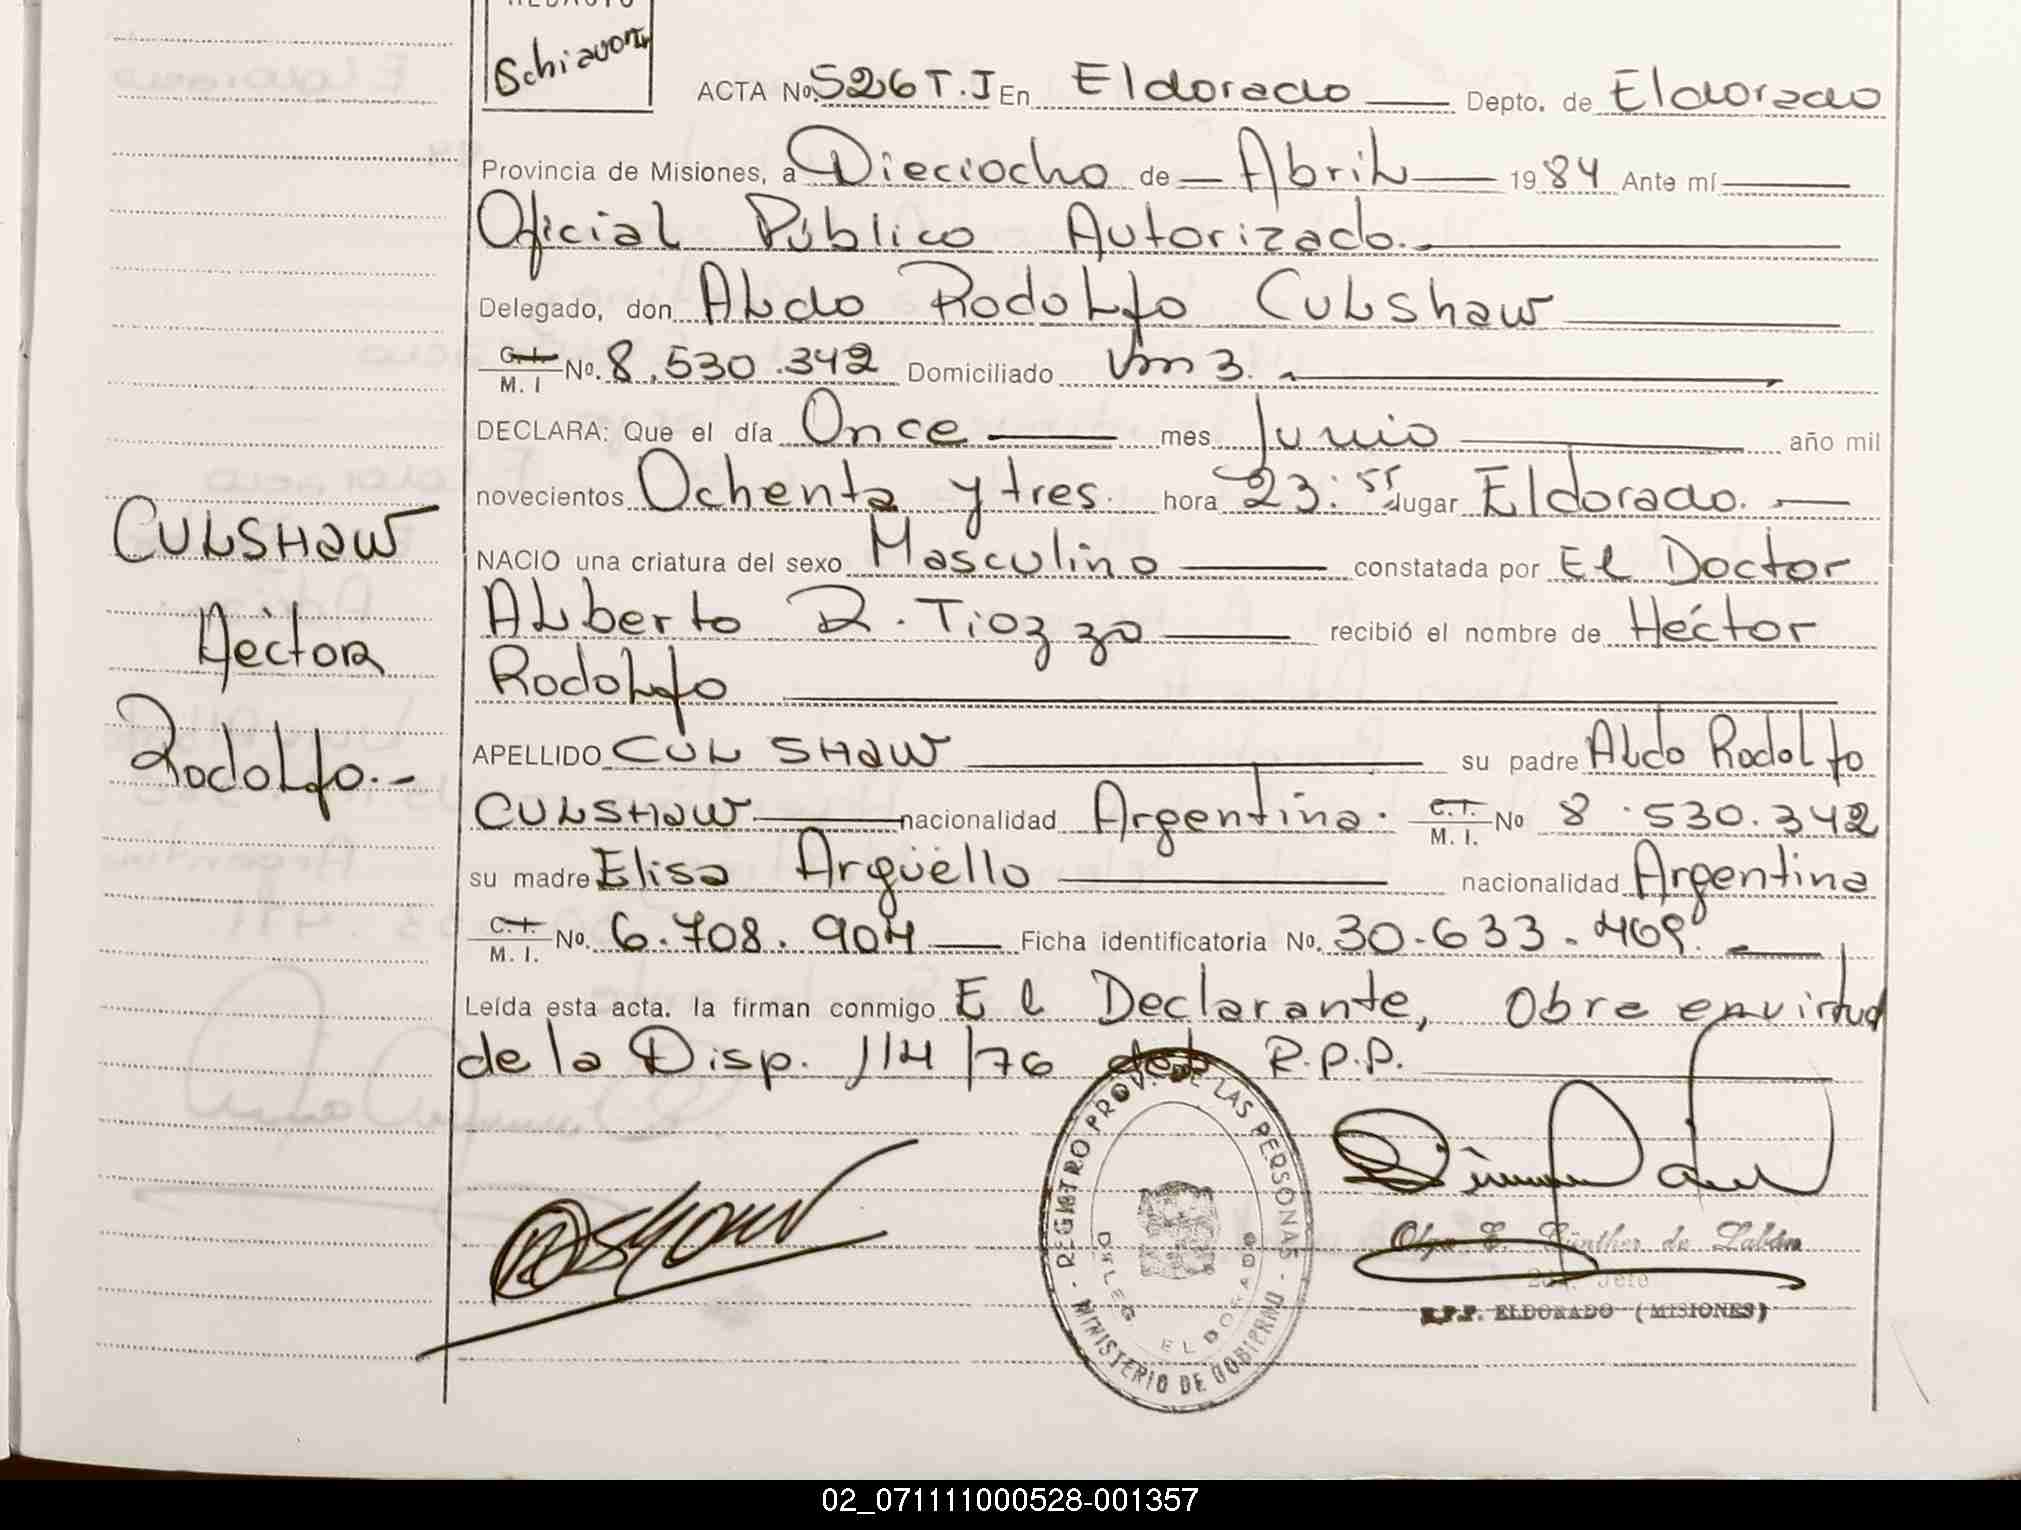 REDACTO
Schiavoni
ACTA Nº 526 T.I En Eldorado Depto. de Eldorado
Provincia de Misiones, a Dieciocho de Abril 1984 Ante mí
Oficial Público Autorizado.
Delegado, don Aldo Rodolfo Culshaw
C. I. M. I Nº. 8.530.342 Domiciliado Km 3.
DECLARA: Que el día Once mes Junio año mil
novecientos Ochenta y tres. hora 23:55 lugar Eldorado.
NACIO una criatura del sexo Masculino constatada por El Doctor
Alberto R. Tiozzo recibió el nombre de Héctor
Rodolfo
APELLIDO CULSHAW su padre Aldo Rodolfo
CULSHAW nacionalidad Argentina. C.I. M. I. Nº 8.530.342
su madre Elisa Argüello nacionalidad Argentina
C.I. M. I. Nº. 6.708.904 Ficha identificatoria Nº. 30.633.469.
Leída esta acta. la firman conmigo El Declarante, Obra en virtud
de la Disp. 114/76 del R.P.P.
CULSHAW
Héctor
Rodolfo.-
REGISTRO PROV. DE LAS PERSONAS
DELEG. ELDORADO
MINISTERIO DE GOBIERNO
Olga E. Günther de Labán
2da. Jefe
R.P.P. ELDORADO (MISIONES)
02_071111000528-001357